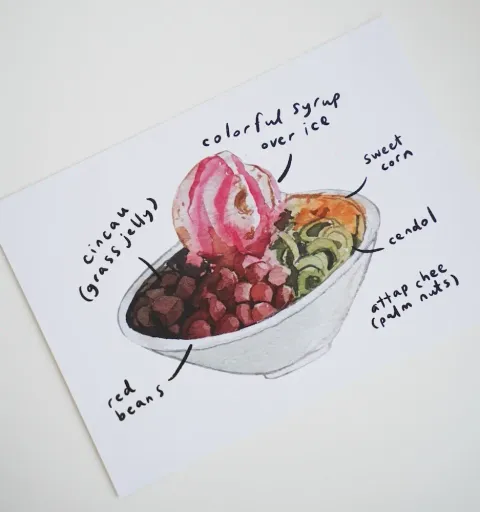 colorful syrup
over ice
sweet
corn
cincau
(grass jelly)
cendol
attap chee
(palm nuts)
red
beans